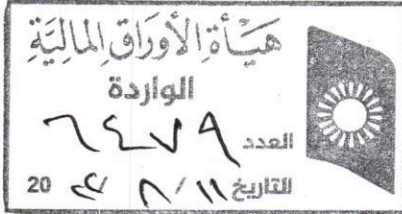 هيأة الأوراق المالية
الواردة
العدد ٦٤٧٩
التاريخ ١١ / ٨ / 20